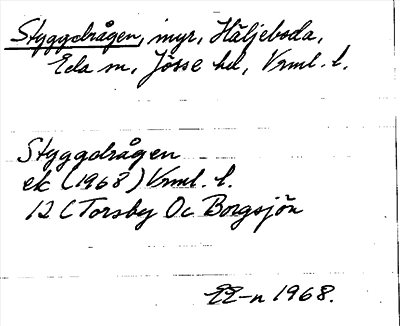 Styggdrågen, myr, Häljeboda,
Eda sn, Jösse hd, Vrml. l.
Styggdrågen
ek (1968) Vrml. l.
12 C Torsby Oc Borgsjön
EE-n 1968.